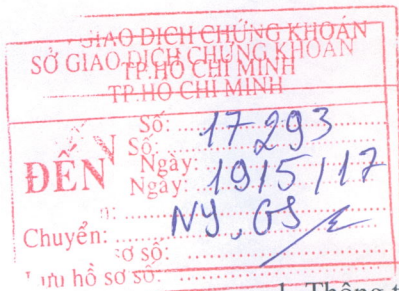 GIAO DỊCH CHỨNG KHOÁN
SỞ GIAO DỊCH CHỨNG KHOÁN
TP.HỒ CHÍ MINH
TP.HỒ CHÍ MINH
Số: 17293
Số:
ĐẾN Ngày:
Ngày: 19/5/17
Chuyển: NY, GS
sơ số:
Lưu hồ sơ số:
1. Thông t